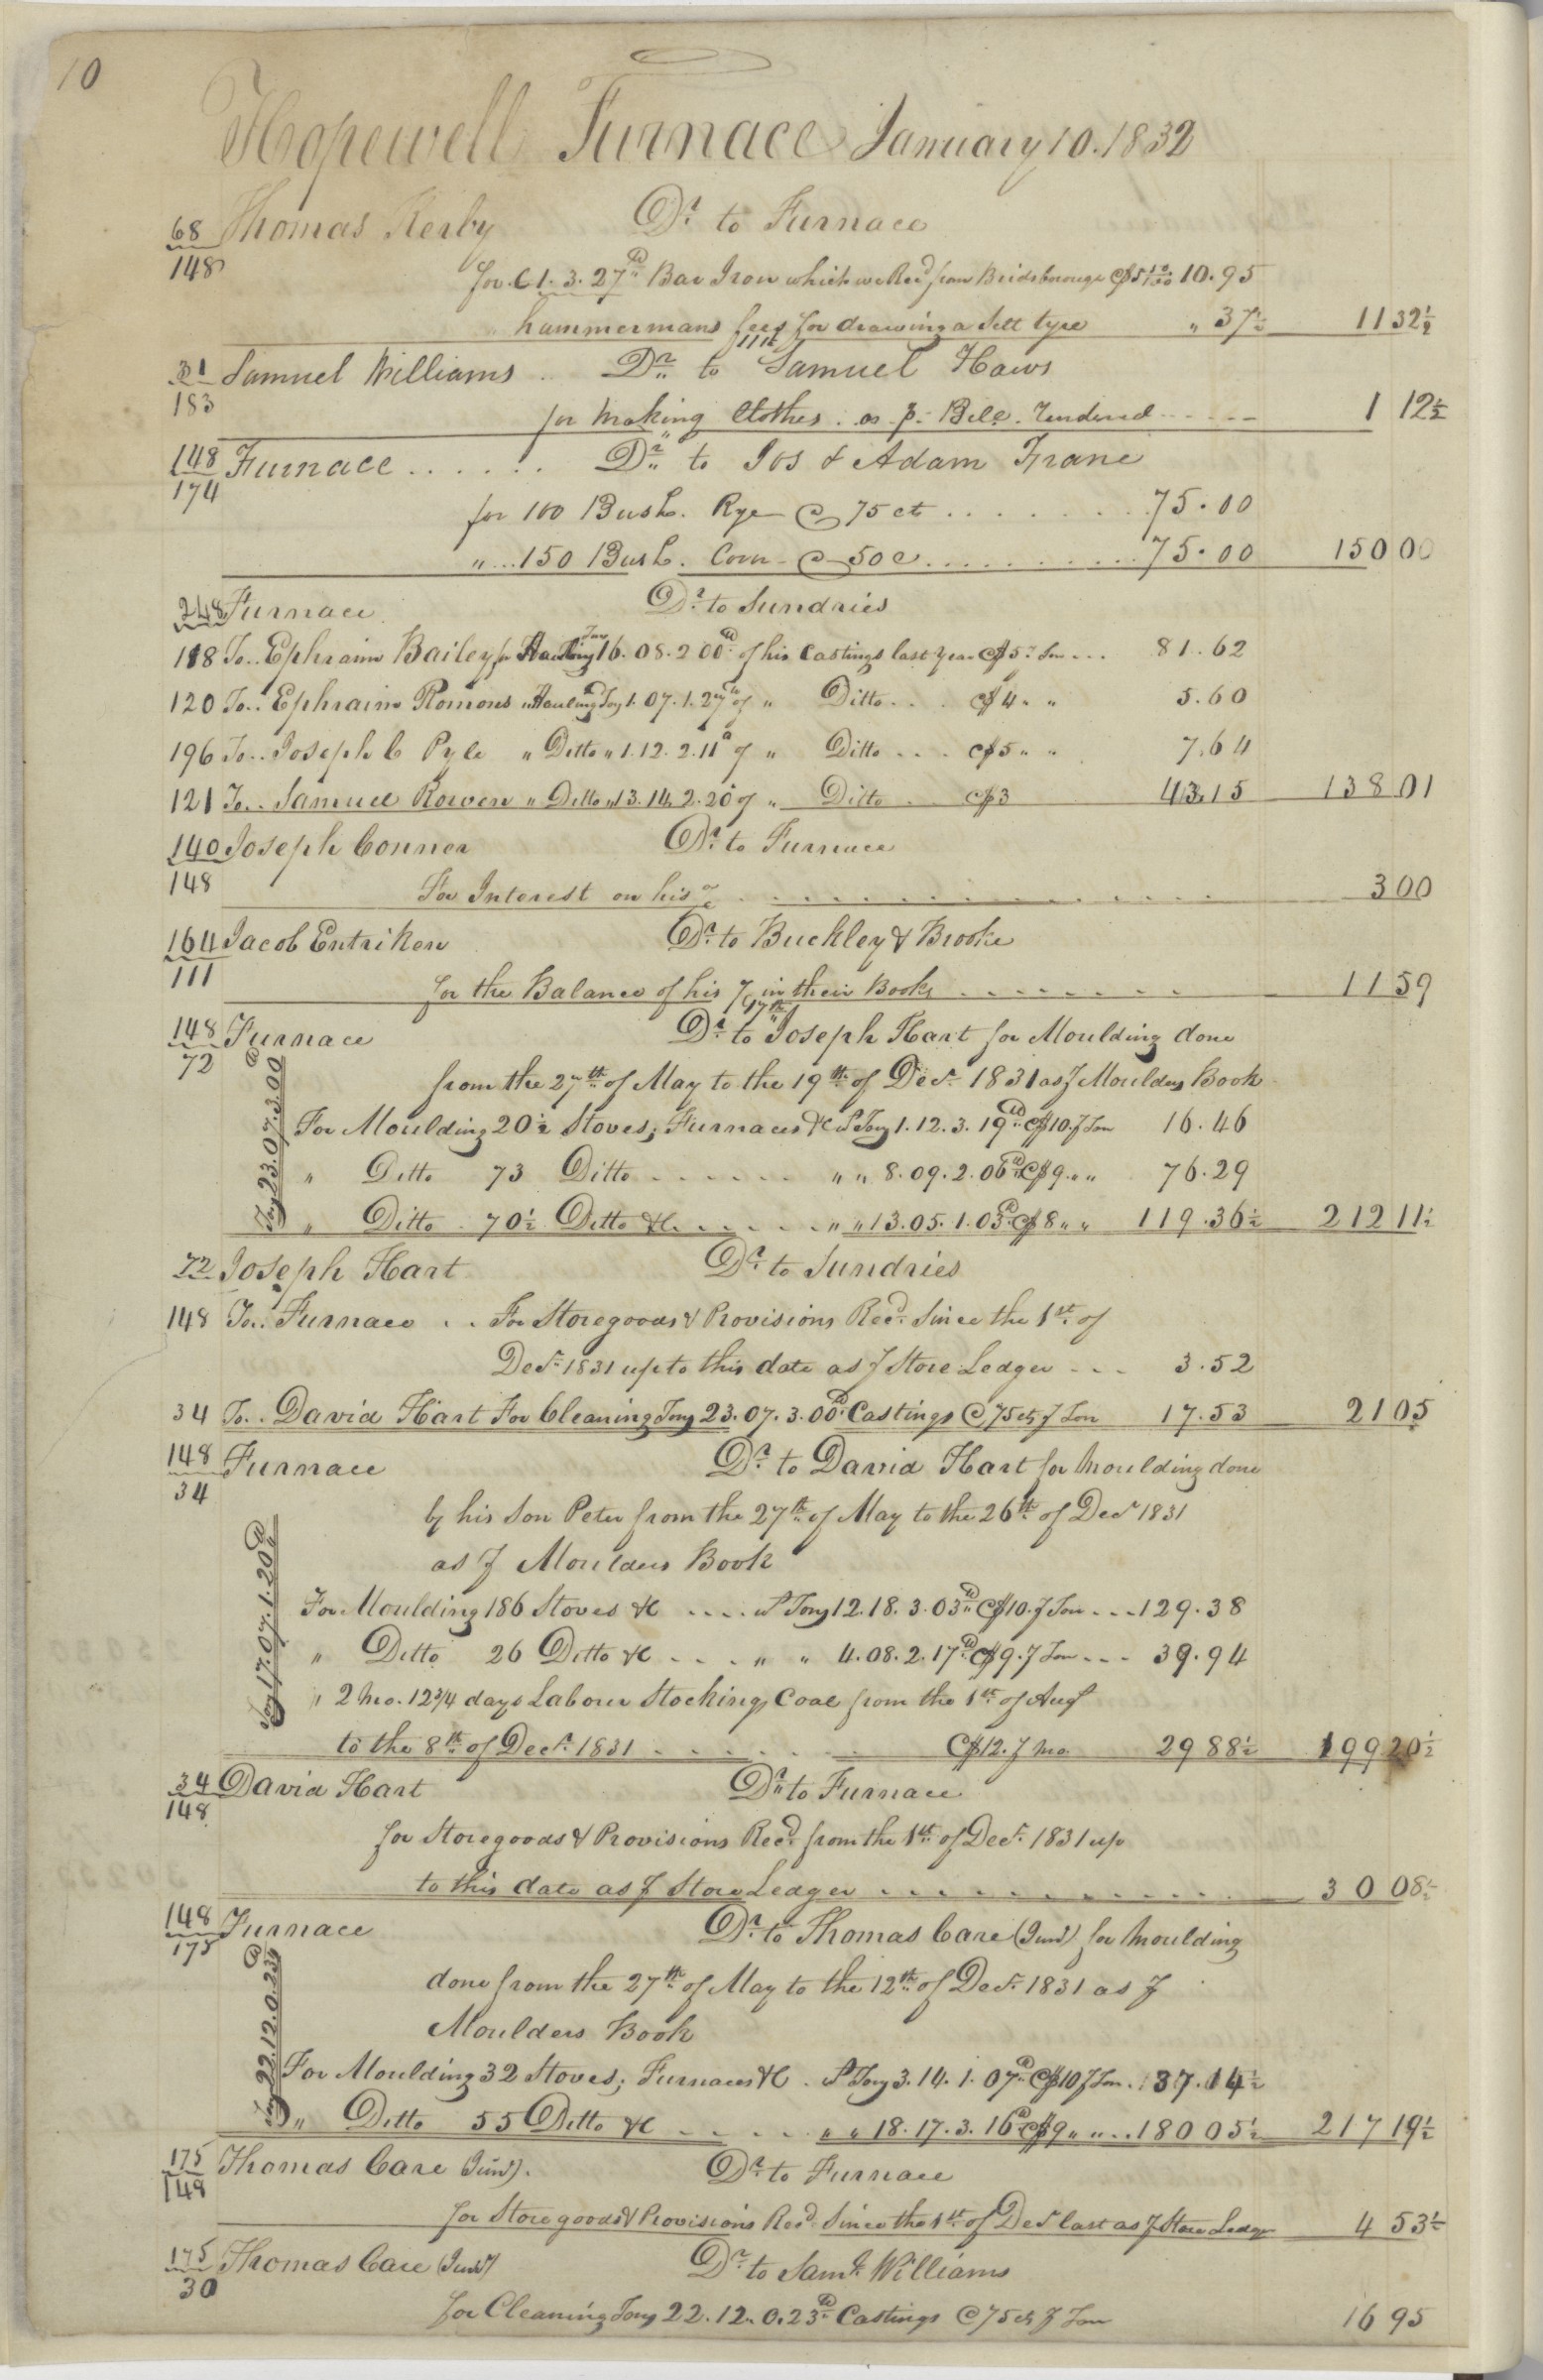 10
Hopewell Furnace January 10. 1832
68 Thomas Kerby Dr. to Furnace
148 for C 1. 3. 27 lb Bar Iron which we Recd from Birdsborough @ $5 50/100 10.95
" hammermans fees for drawing a Sett tyre " 37½ 11 32½
11th
31 Samuel Williams .. Dr. to Samuel Haws
183
for making Clothes . as p. Bill . Rendered ..... 1 12½
148 Furnace ...... Dr. to Jos & Adam Frane
174
for 100 Bush. Rye @ 75 ct ........ 75.00
" ... 150 Bush. Corn @ 50 c .......... 75.00 150 00
248 Furnace Dr. to Sundries
118 To.. Ephraim Bailey for Hauling Tons 16. 08. 2 00 lb of his Castings last year @ $5 . Ton ... 81.62
120 To.. Ephraim Romons " Hauling Tons 1. 07. 1. 27 lb of " Ditto .. . @ $4 . " 5.60
196 To.. Joseph C Pyle " Ditto " 1. 12. 2. 11 lb of " Ditto .... @ $5 " " 7.64
121 To.. Samuel Rowen " Ditto " 13. 14. 2. 20 of " Ditto . @ $3 43.15 138 01
140 Joseph Conner Dr. to Furnace
148 For Interest on his a/c .............. 3 00
164 Jacob Entriken Dr. to Buckley & Brooke
111 for the Balance of his a/c in their Books ........ 11 59
17th
148 Furnace Dr. to Joseph Hart for Moulding done
72
from the 27th of May to the 19th of Decr. 1831 as p Moulders Book
Tons 23. 07. 3. 00 lb
For Moulding 20½ Stoves, Furnaces &c Wt Tons 1. 12. 3. 19 lb @ $10. p Ton 16.46
" Ditto 73 Ditto ....... " " 8. 09. 2. 06 lb @ $9. " " 76.29
" Ditto . 70½ Ditto &c ...... " " 13. 05. 1. 03 lb @ $8 " " 119.36½ 212 11½
72 Joseph Hart Dr. to Sundries
148 To.. Furnace .. For Storegoods & Provisions Recd. Since the 1st. of
Decr. 1831 up to this date as p Store Ledger ... 3.52
34 To.. David Hart For Cleaning Tons 23. 07. 3. 00 lb Castings @ 75 cts p Ton 17.53 21 05
148 Furnace Dr. to David Hart for Moulding done
34
by his Son Peter from the 27th. of May to the 26th. of Decr 1831
as p Moulders Book
Tons 17. 07. 1. 20 lb
For Moulding 186 Stoves &c .... Wt Tons 12. 18. 3. 03 lb @ $10. p Ton ... 129.38
" Ditto 26 Ditto &c .... " " 4. 08. 2. 17 lb @ $9. p Ton ... 39.94
" 2 mo. 12¾ days Labour Stocking Coal from the 1st. of Augt
to the 8th. of Decr. 1831 ....... @ $12. p mo. 29 88½ 199 20½
34 David Hart Dr. to Furnace
148
for Storegoods & Provisions Recd. from the 1st. of Decr. 1831 up
to this date as p Store Ledger .......... 30 08½
148 Furnace Dr. to Thomas Care (Junr) for Moulding
175
done from the 27th. of May to the 12th. of Decr. 1831 as p
Moulders Book
Tons 22. 12. 0. 23 lb
For Moulding 32 Stoves, Furnaces &c . Wt Tons 3. 14. 1. 07 lb @ $10 p Ton . 37.14½
" Ditto 55 Ditto &c ..... " " 18. 17. 3. 16 lb @ $9 " " .. 180 05½ 217 19½
175 Thomas Care (Junr). Dr. to Furnace
148
for Storegoods & Provisions Recd. Since the 1st. of Decr last as p Store Ledger 4 53½
175 Thomas Care (Junr) Dr. to Saml. Williams
30
for Cleaning Tons 22. 12. 0. 23 lb Castings @ 75 cts p Ton 16 95